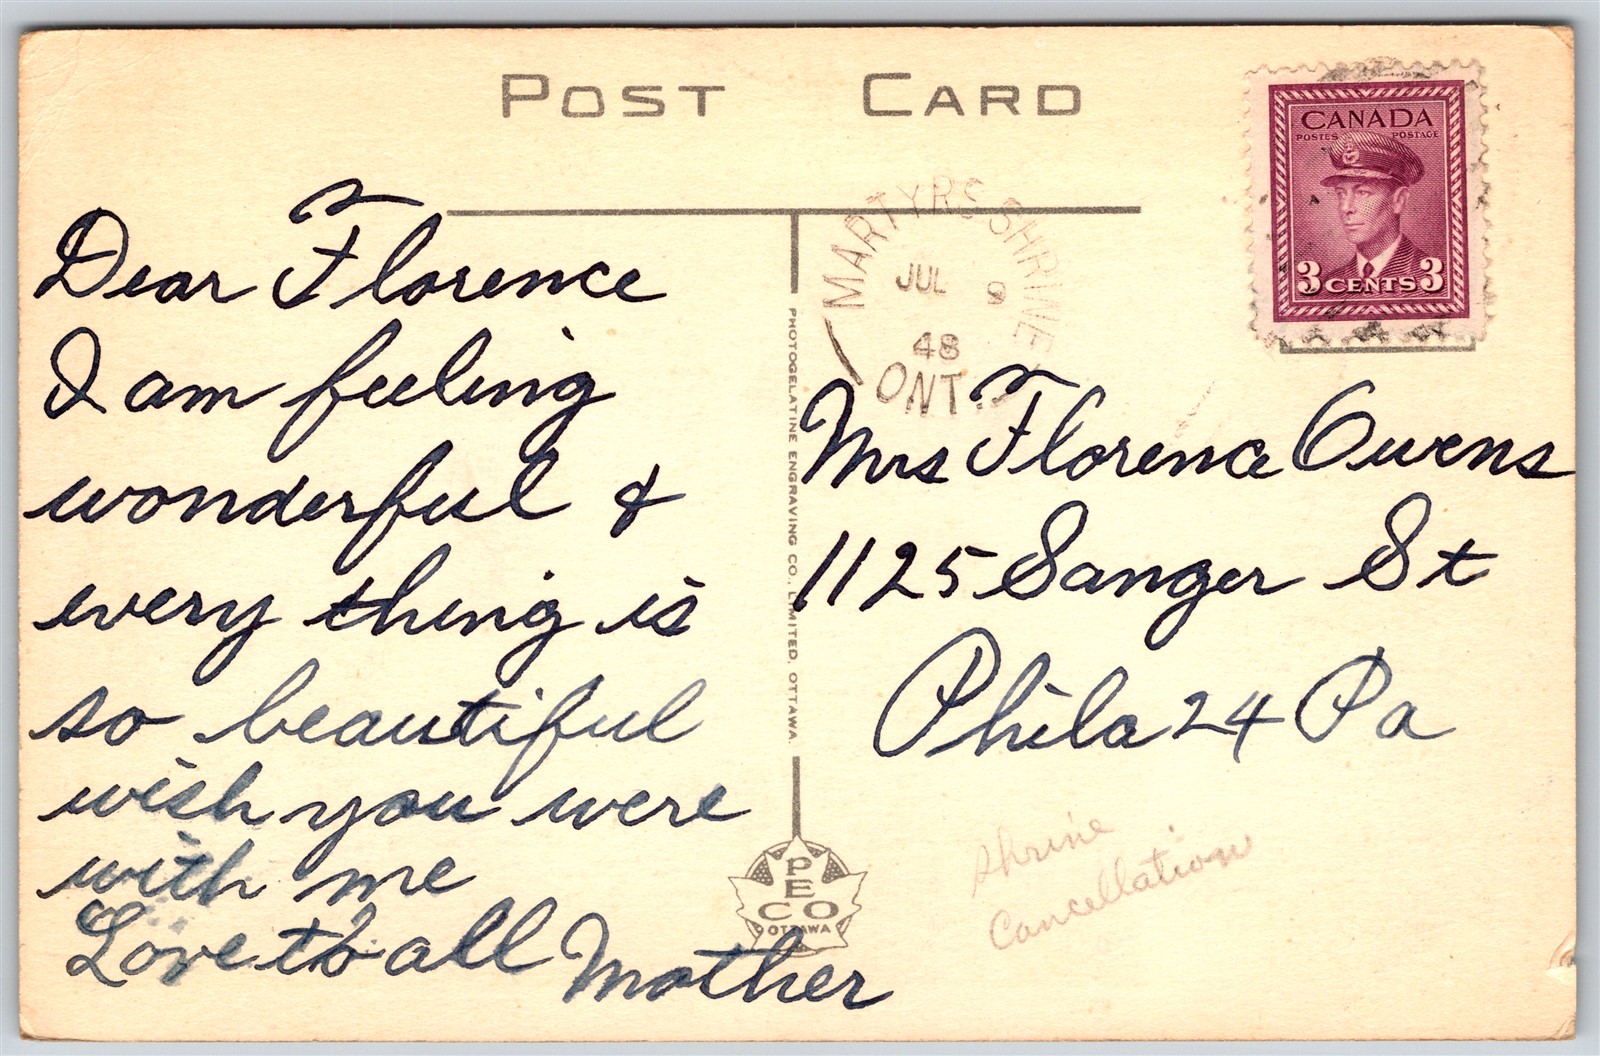 POST CARD
CANADA
POSTES POSTAGE
3 CENTS 3
MARTYRS SHRINE
JUL 9
48
ONT.
Dear Florence
I am feeling
wonderful &
every thing is
so beautiful
wish you were
with me
Love to all Mother
PHOTOGELATINE ENGRAVING CO., LIMITED, OTTAWA.
Mrs Florence Owens
1125 Sanger St
Phila 24 Pa
PECO
OTTAWA
Shrine
Cancellation